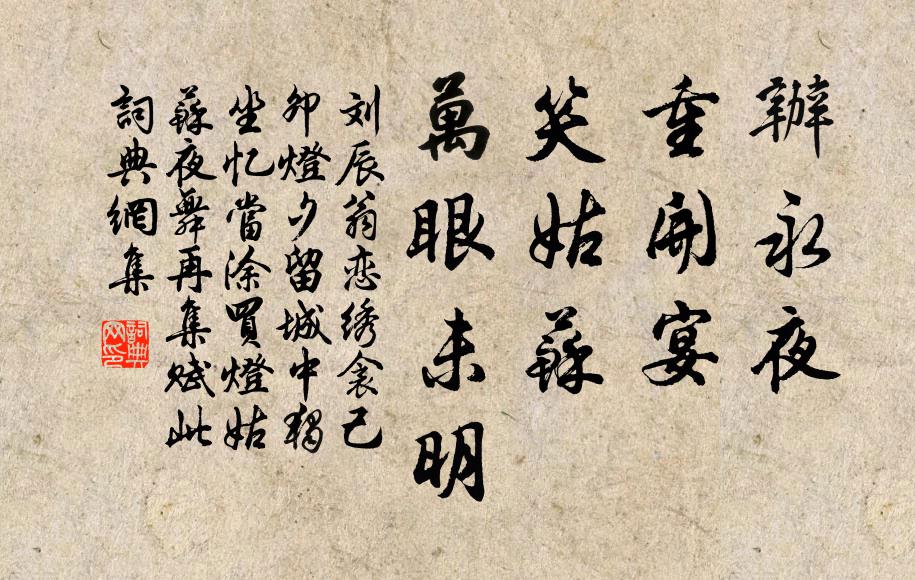 辦永夜
重開宴
笑姑蘇
萬眼未明
刘辰翁恋绣衾己
卯燈夕留城中獨
坐忆當涂買燈姑
蘇夜舞再集赋此
詞典網集
詞典網印